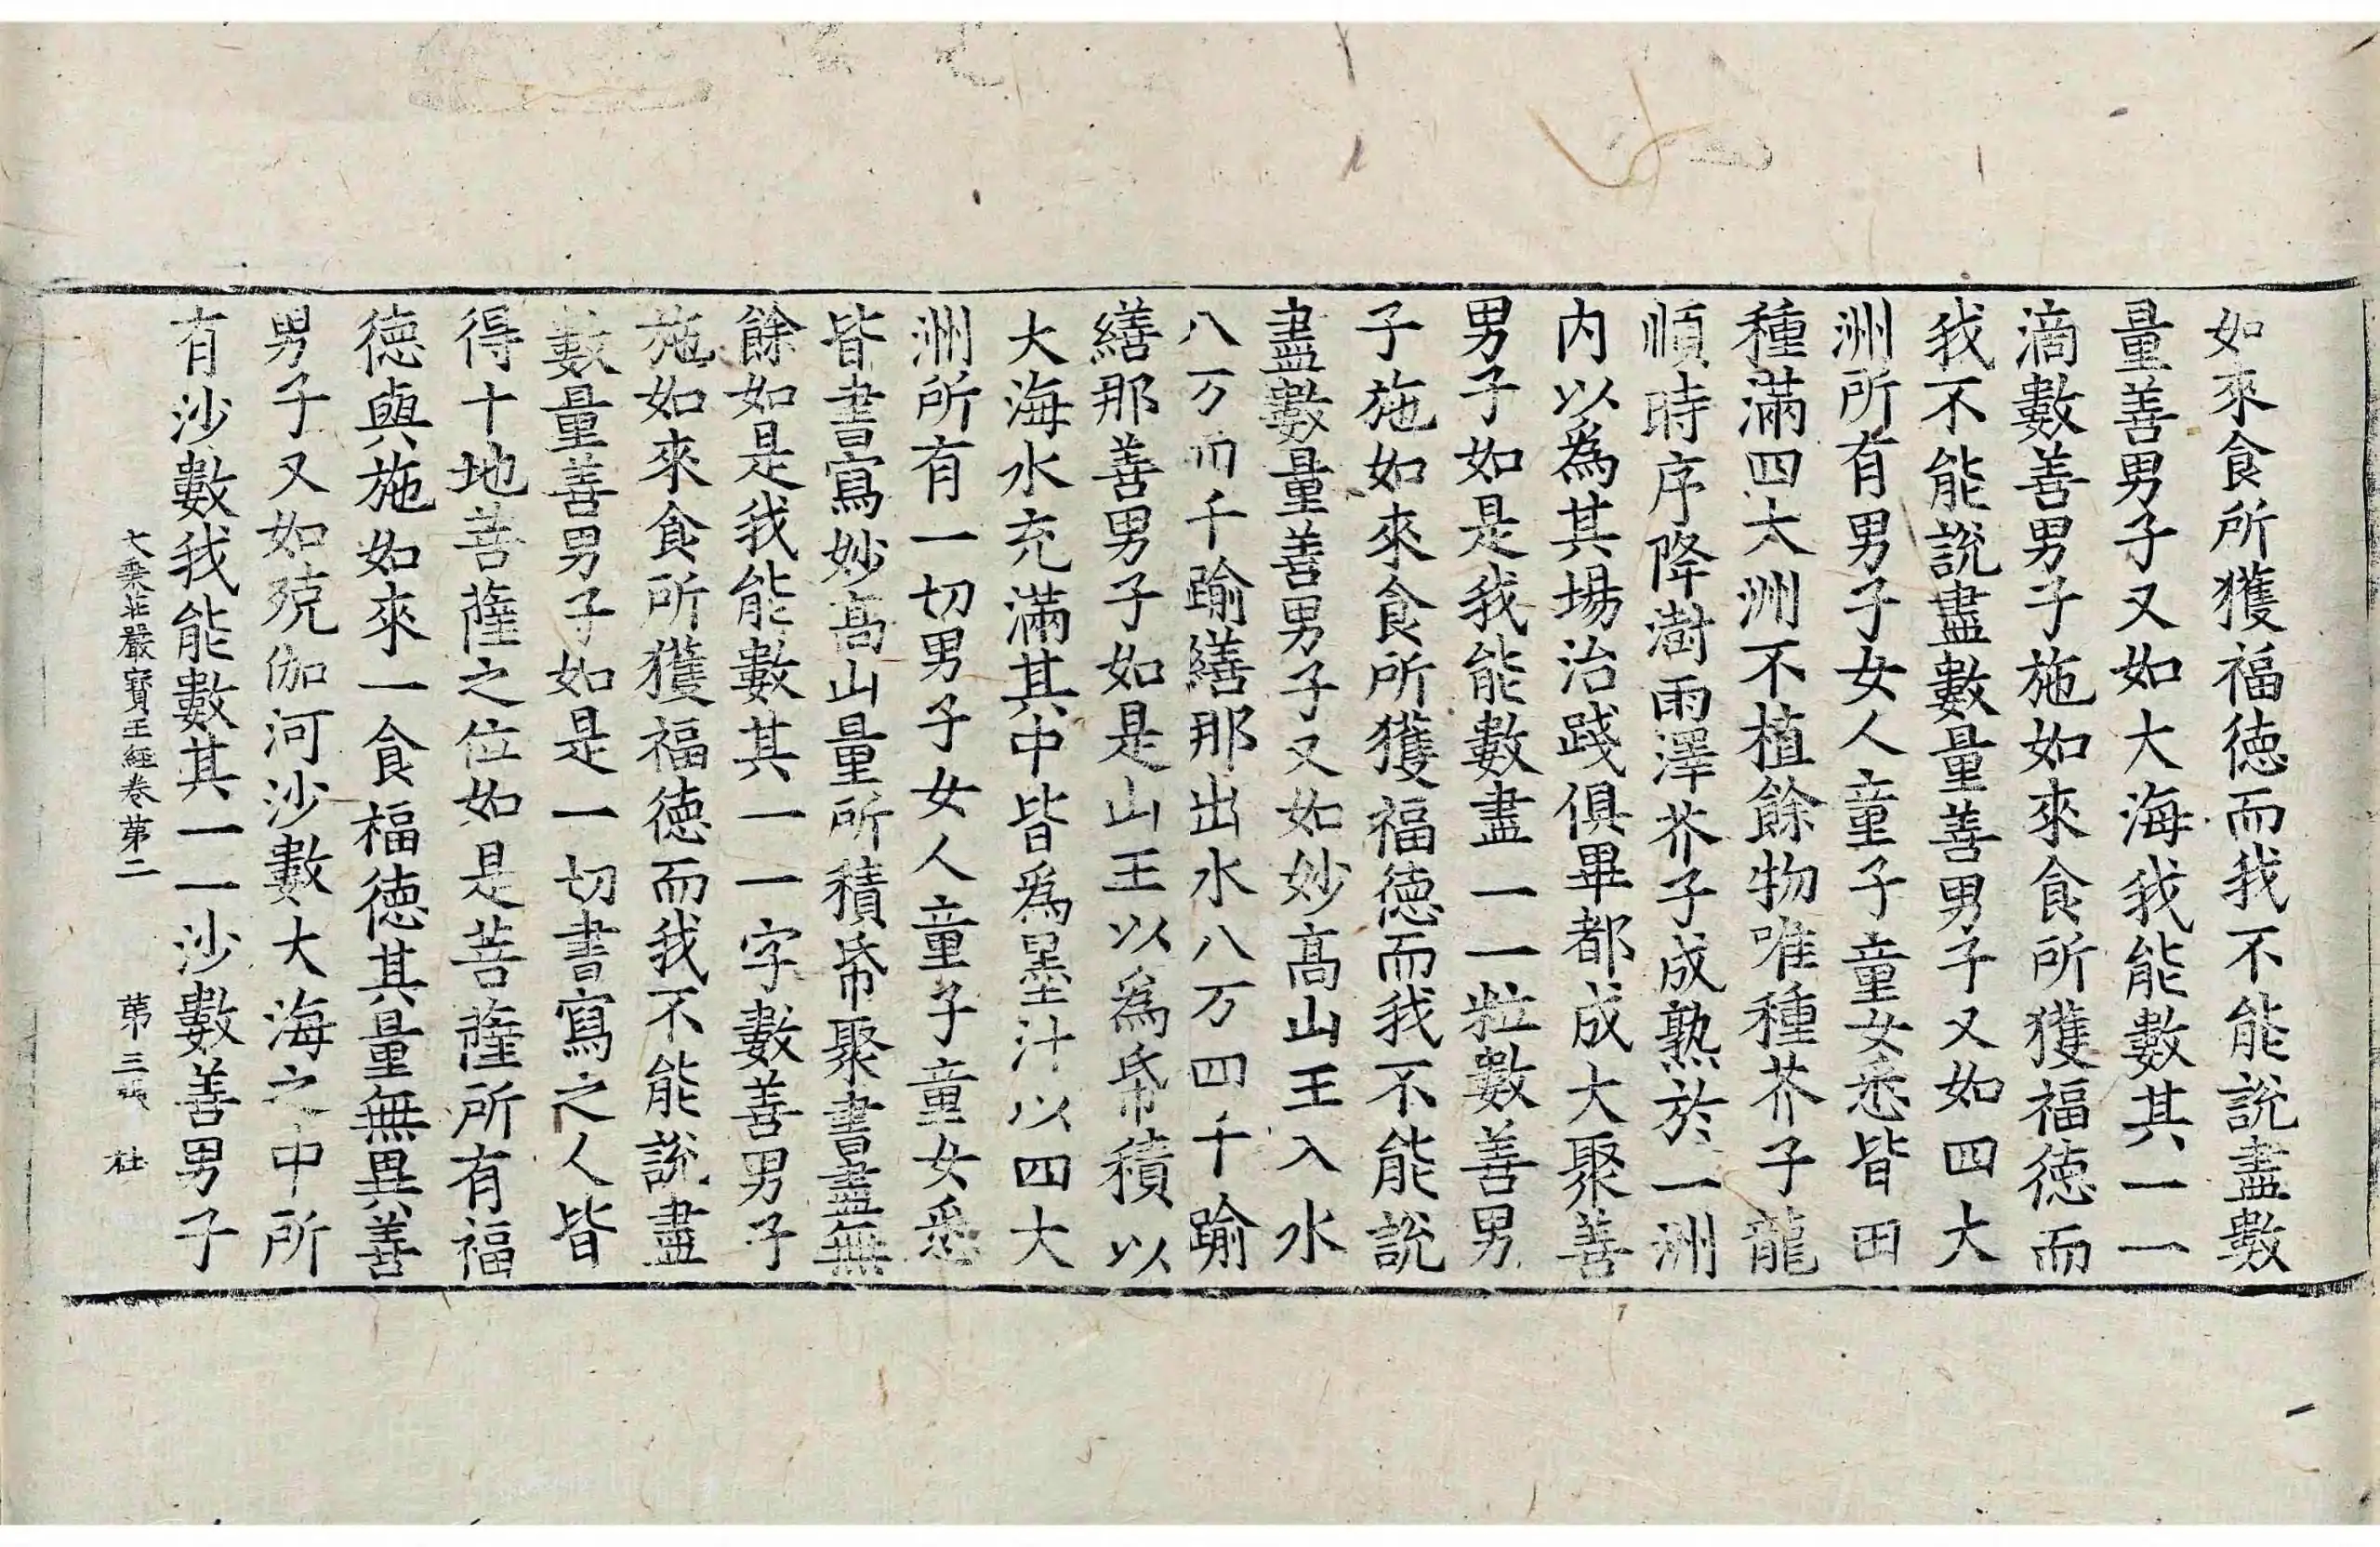 如來食所獲福德而我不能說盡數
量善男子又如大海我能數其一一
滴數善男子施如來食所獲福德而
我不能說盡數量善男子又如四大
洲所有男子女人童子童女悉皆田
種滿四大洲不植餘物唯種芥子龍
順時序降澍雨澤芥子成熟於一洲
内以為其場治踐俱畢都成大聚善
男子如是我能數盡一一粒數善男
子施如來食所獲福德而我不能說
盡數量善男子又如妙高山王入水
八万四千踰繕那出水八万四千踰
繕那善男子如是山王以為帋積以
大海水充滿其中皆為墨汁以四大
洲所有一切男子女人童子童女悉
皆書寫妙高山量所積帋聚書盡無
餘如是我能數其一一字數善男子
施如來食所獲福德而我不能說盡
數量善男子如是一切書寫之人皆
得十地菩薩之位如是菩薩所有福
德與施如來一食福德其量無異善
男子又如殑伽河沙數大海之中所
有沙數我能數其一一沙數善男子
大乘莊嚴寶王經卷第二 第三張 杜